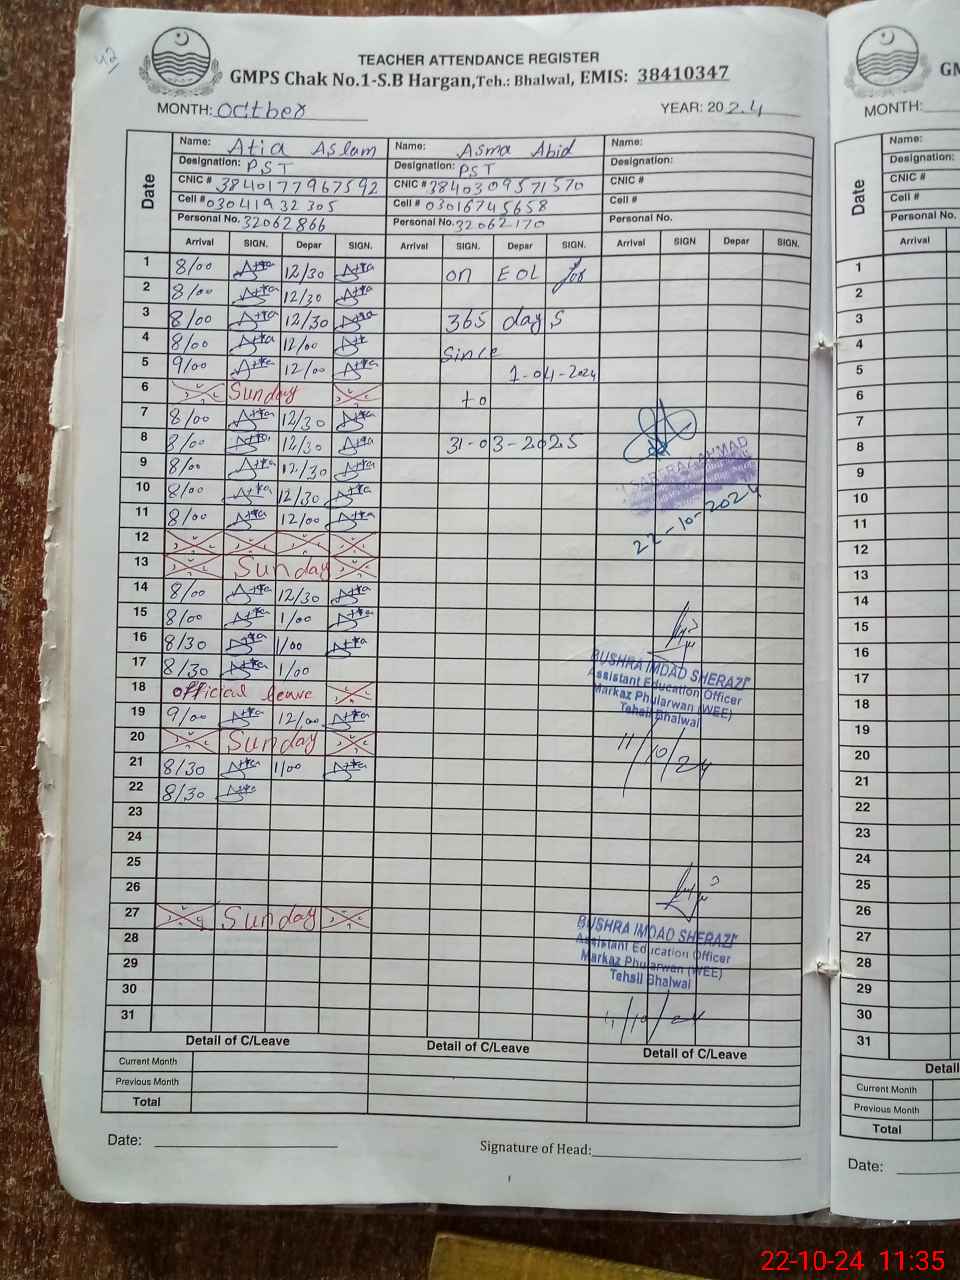 42
TEACHER ATTENDANCE REGISTER
GMPS Chak No.1-S.B Hargan,Teh.: Bhalwal, EMIS: 38410347
MONTH: Octtber YEAR: 2024
Name: Atia Aslam Name: Asma Abid Name:
Designation: PST Designation: PST Designation:
CNIC # 3840177967592 CNIC # 3840309571570 CNIC #
Cell # 03041932305 Cell # 03016745658 Cell #
Personal No. 32062866 Personal No. 32062170 Personal No.
Date Arrival SIGN. Depar SIGN. Arrival SIGN. Depar SIGN. Arrival SIGN Depar SIGN.
1 8/00 Atia 12/30 Atia on EOL
2 8/00 Atia 12/30 Atia
3 8/00 Atia 12/30 Atia 365 days
4 8/00 Atia 12/00 Atia Since
5 9/00 Atia 12/00 Atia 1-04-2024
6 Sunday to
7 8/00 Atia 12/30 Atia
8 8/00 Atia 12/30 Atia 31-03-2025
9 8/00 Atia 12/30 Atia
10 8/00 Atia 12/30 Atia
11 8/00 Atia 12/00 Atia
12
13 Sunday
14 8/00 Atia 12/30 Atia
15 8/00 Atia 1/00 Atia
16 8/30 Atia 1/00 Atia
17 8/30 Atia 1/00
18 official leave
19 9/00 Atia 12/00 Atia
20 Sunday
21 8/30 Atia 1/00 Atia
22 8/30 Atia
23
24
25
26
27 Sunday
28
29
30
31
AHMAD
22-10-2024
BUSHRA IMDAD SHERAZI
Assistant Education Officer
Markaz Phularwan (WEE)
Tehsil Bhalwal
11/10/24
BUSHRA IMDAD SHERAZI
Assistant Education Officer
Markaz Phularwan (WEE)
Tehsil Bhalwal
Detail of C/Leave Detail of C/Leave Detail of C/Leave
Current Month
Previous Month
Total
Date: Signature of Head:
GM
MONTH:
Name:
Designation:
CNIC #
Cell #
Personal No.
Date Arrival
1
2
3
4
5
6
7
8
9
10
11
12
13
14
15
16
17
18
19
20
21
22
23
24
25
26
27
28
29
30
31
Detail
Current Month
Previous Month
Total
Date:
22-10-24 11:35